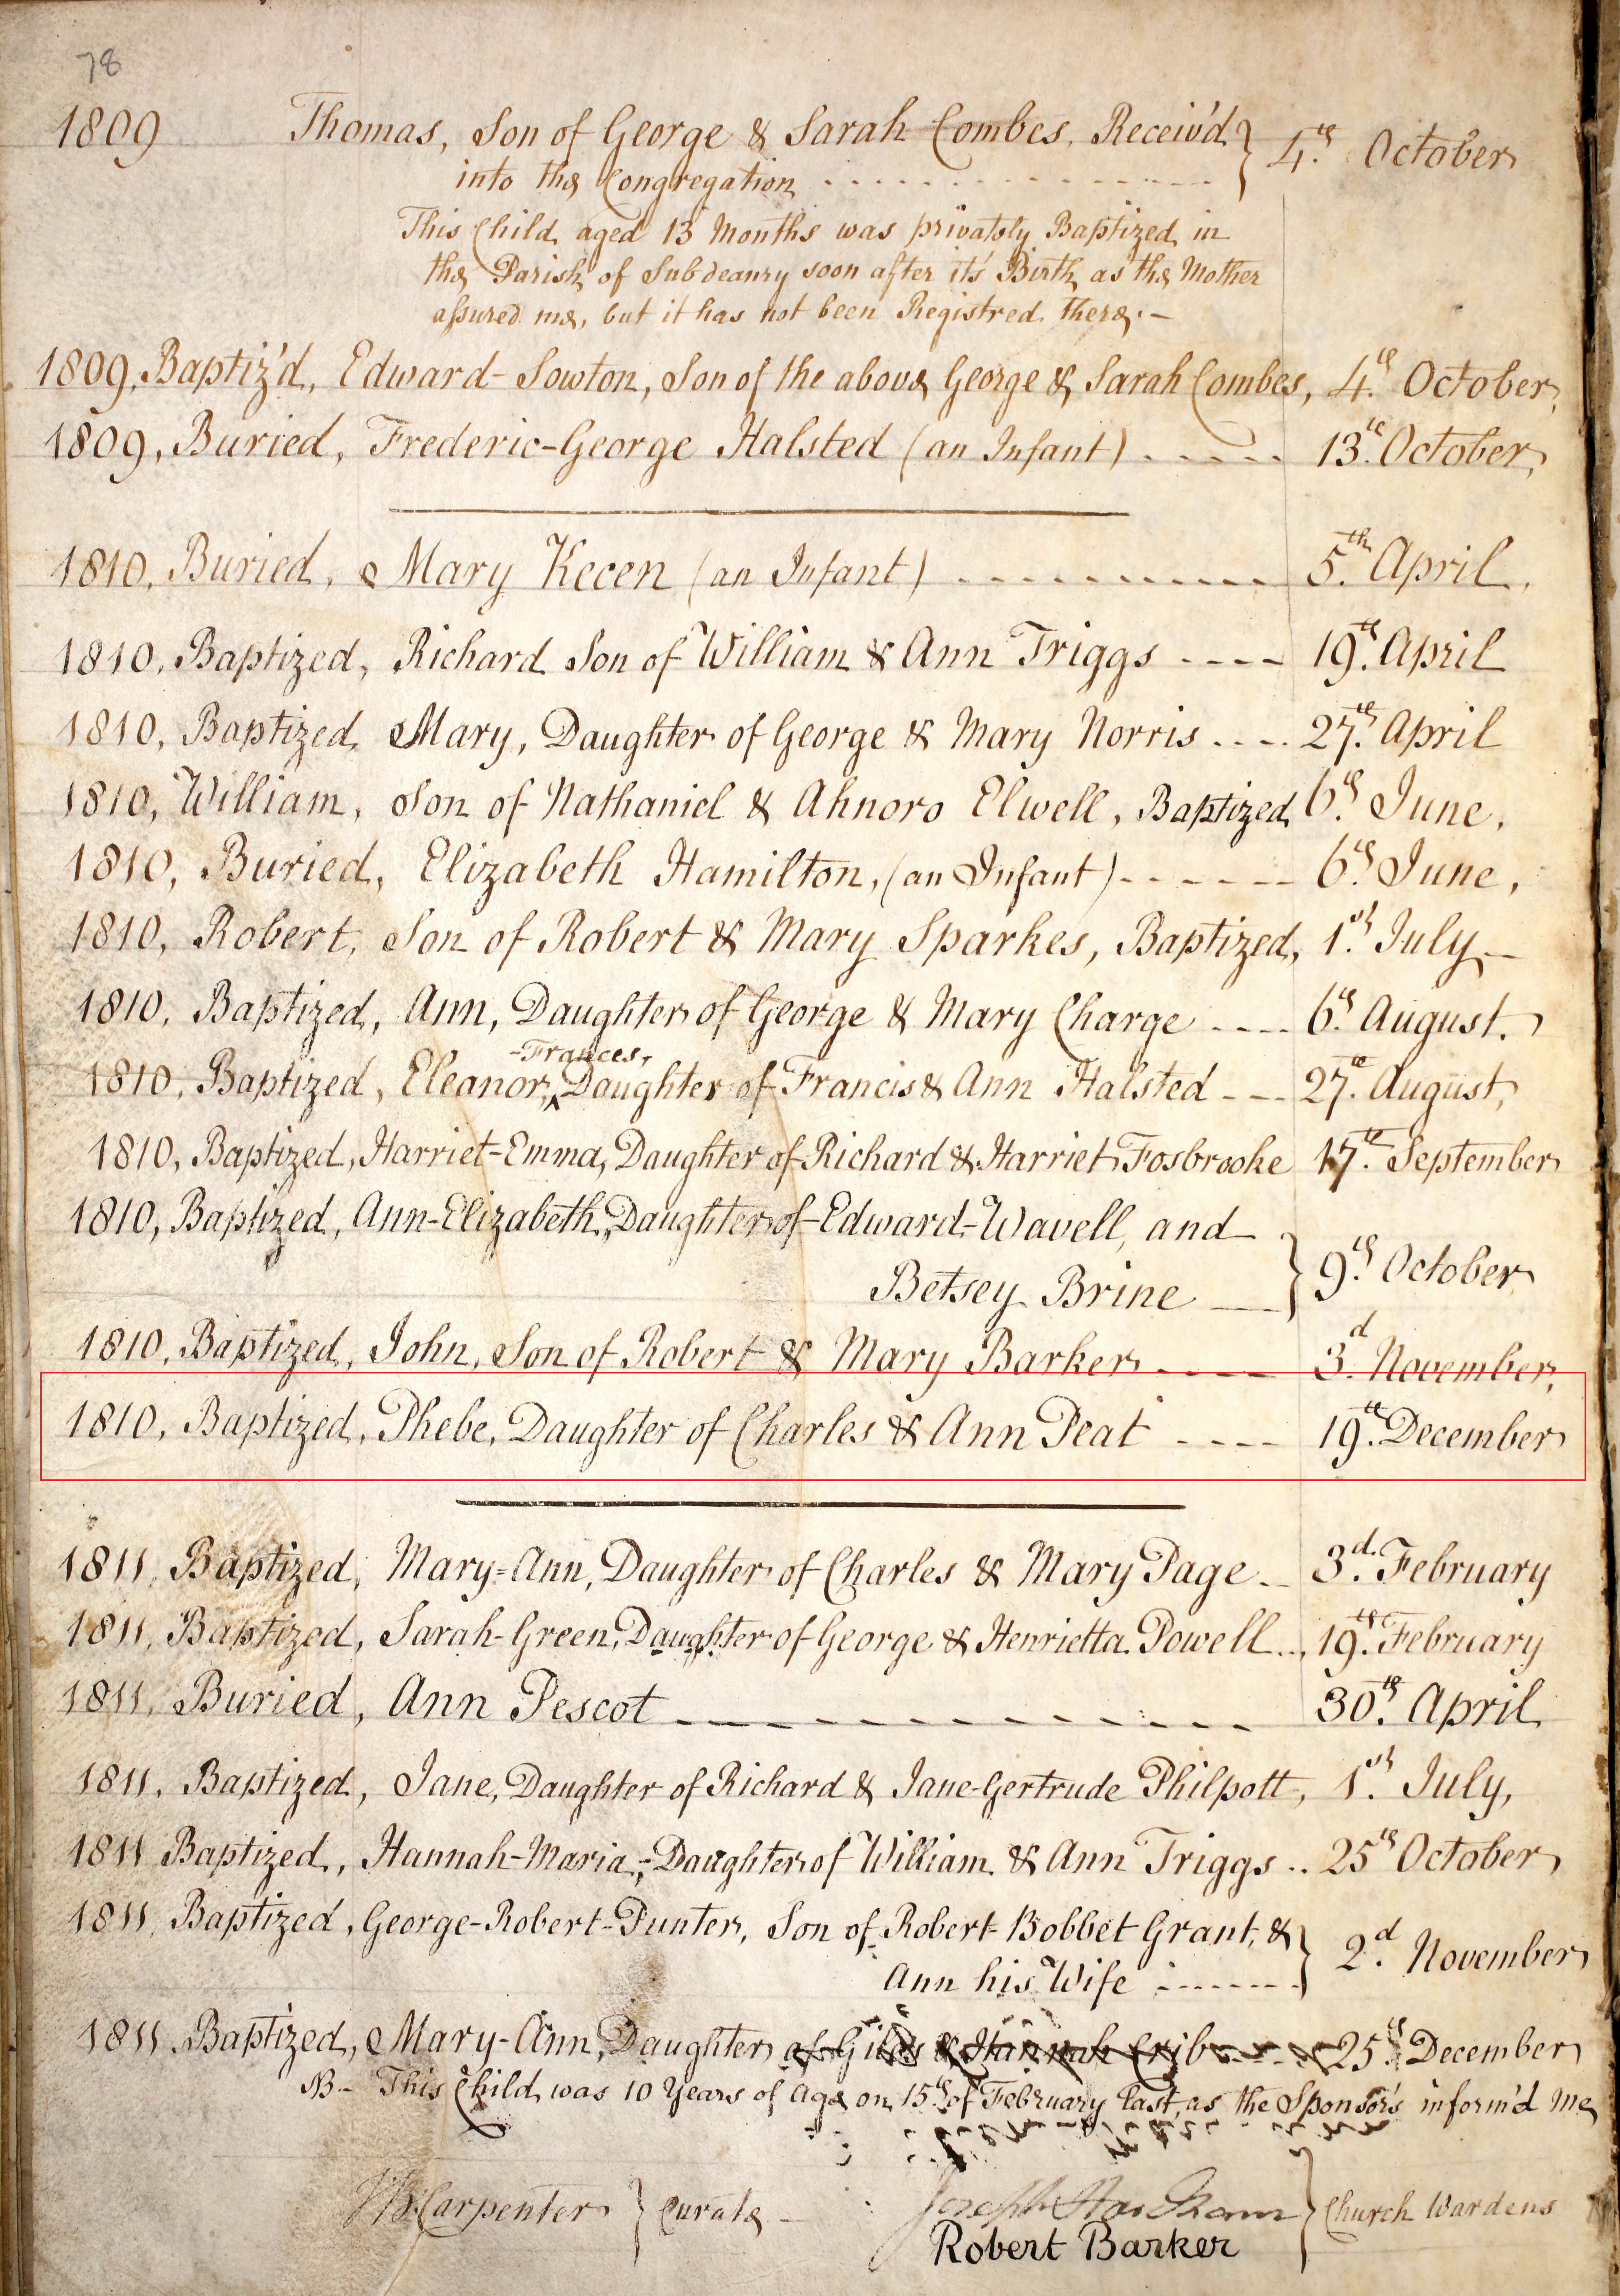 78
1809 Thomas, Son of George & Sarah Combes, Receiv'd } 4th October
into the Congregation
This Child aged 13 Months was privately Baptized in
the Parish of Subdeanry soon after it's Birth, as the Mother
assured me, but it has not been Registred there. –
1809, Baptiz'd, Edward-Sowton, Son of the above George & Sarah Combes, 4th October,
1809, Buried, Frederic-George Halsted (an Infant) 13th October,
1810, Buried, Mary Kecen (an Infant) 5th April,
1810, Baptized, Richard Son of William & Ann Triggs 19th April
1810, Baptized, Mary, Daughter of George & Mary Norris 27th April
1810, William, Son of Nathaniel & Ahnoro Elwell, Baptized 6th June,
1810, Buried, Elizabeth Hamilton, (an Infant) 6th June,
1810, Robert, Son of Robert & Mary Sparkes, Baptized, 1st July –
1810, Baptized, Ann, Daughter of George & Mary Charge 6th August.
-Frances,
1810, Baptized, Eleanor, ^ Daughter of Francis & Ann Halsted 27th August,
1810, Baptized, Harriet-Emma, Daughter of Richard & Harriet Fosbrooke 17th September
1810, Baptized, Ann-Elizabeth, Daughter of Edward-Wavell, and
Betsey Brine } 9th October
1810, Baptized, John, Son of Robert & Mary Barker 3d November,
1810, Baptized, Phebe, Daughter of Charles & Ann Peat 19th December
1811, Baptized, Mary-Ann, Daughter of Charles & Mary Page 3d February
1811, Baptized, Sarah-Green, Daughter of George & Henrietta Powell 19th February
1811, Buried, Ann Pescot 30th April
1811, Baptized, Jane, Daughter of Richard & Jane-Gertrude Philpott, 1st July,
1811 Baptized, Hannah-Maria, Daughter of William & Ann Triggs 25th October
1811 Baptized, George-Robert-Punter, Son of Robert-Bobbet Grant, &
Ann his Wife } 2d November
1811 Baptized, Mary-Ann, Daughter of Giles & Hannah Crib 25th December
NB – This Child was 10 Years of Age on 15th of February last, as the Sponsors inform'd me
Carpenter } Curate – Joseph } Church Wardens
Robert Barker